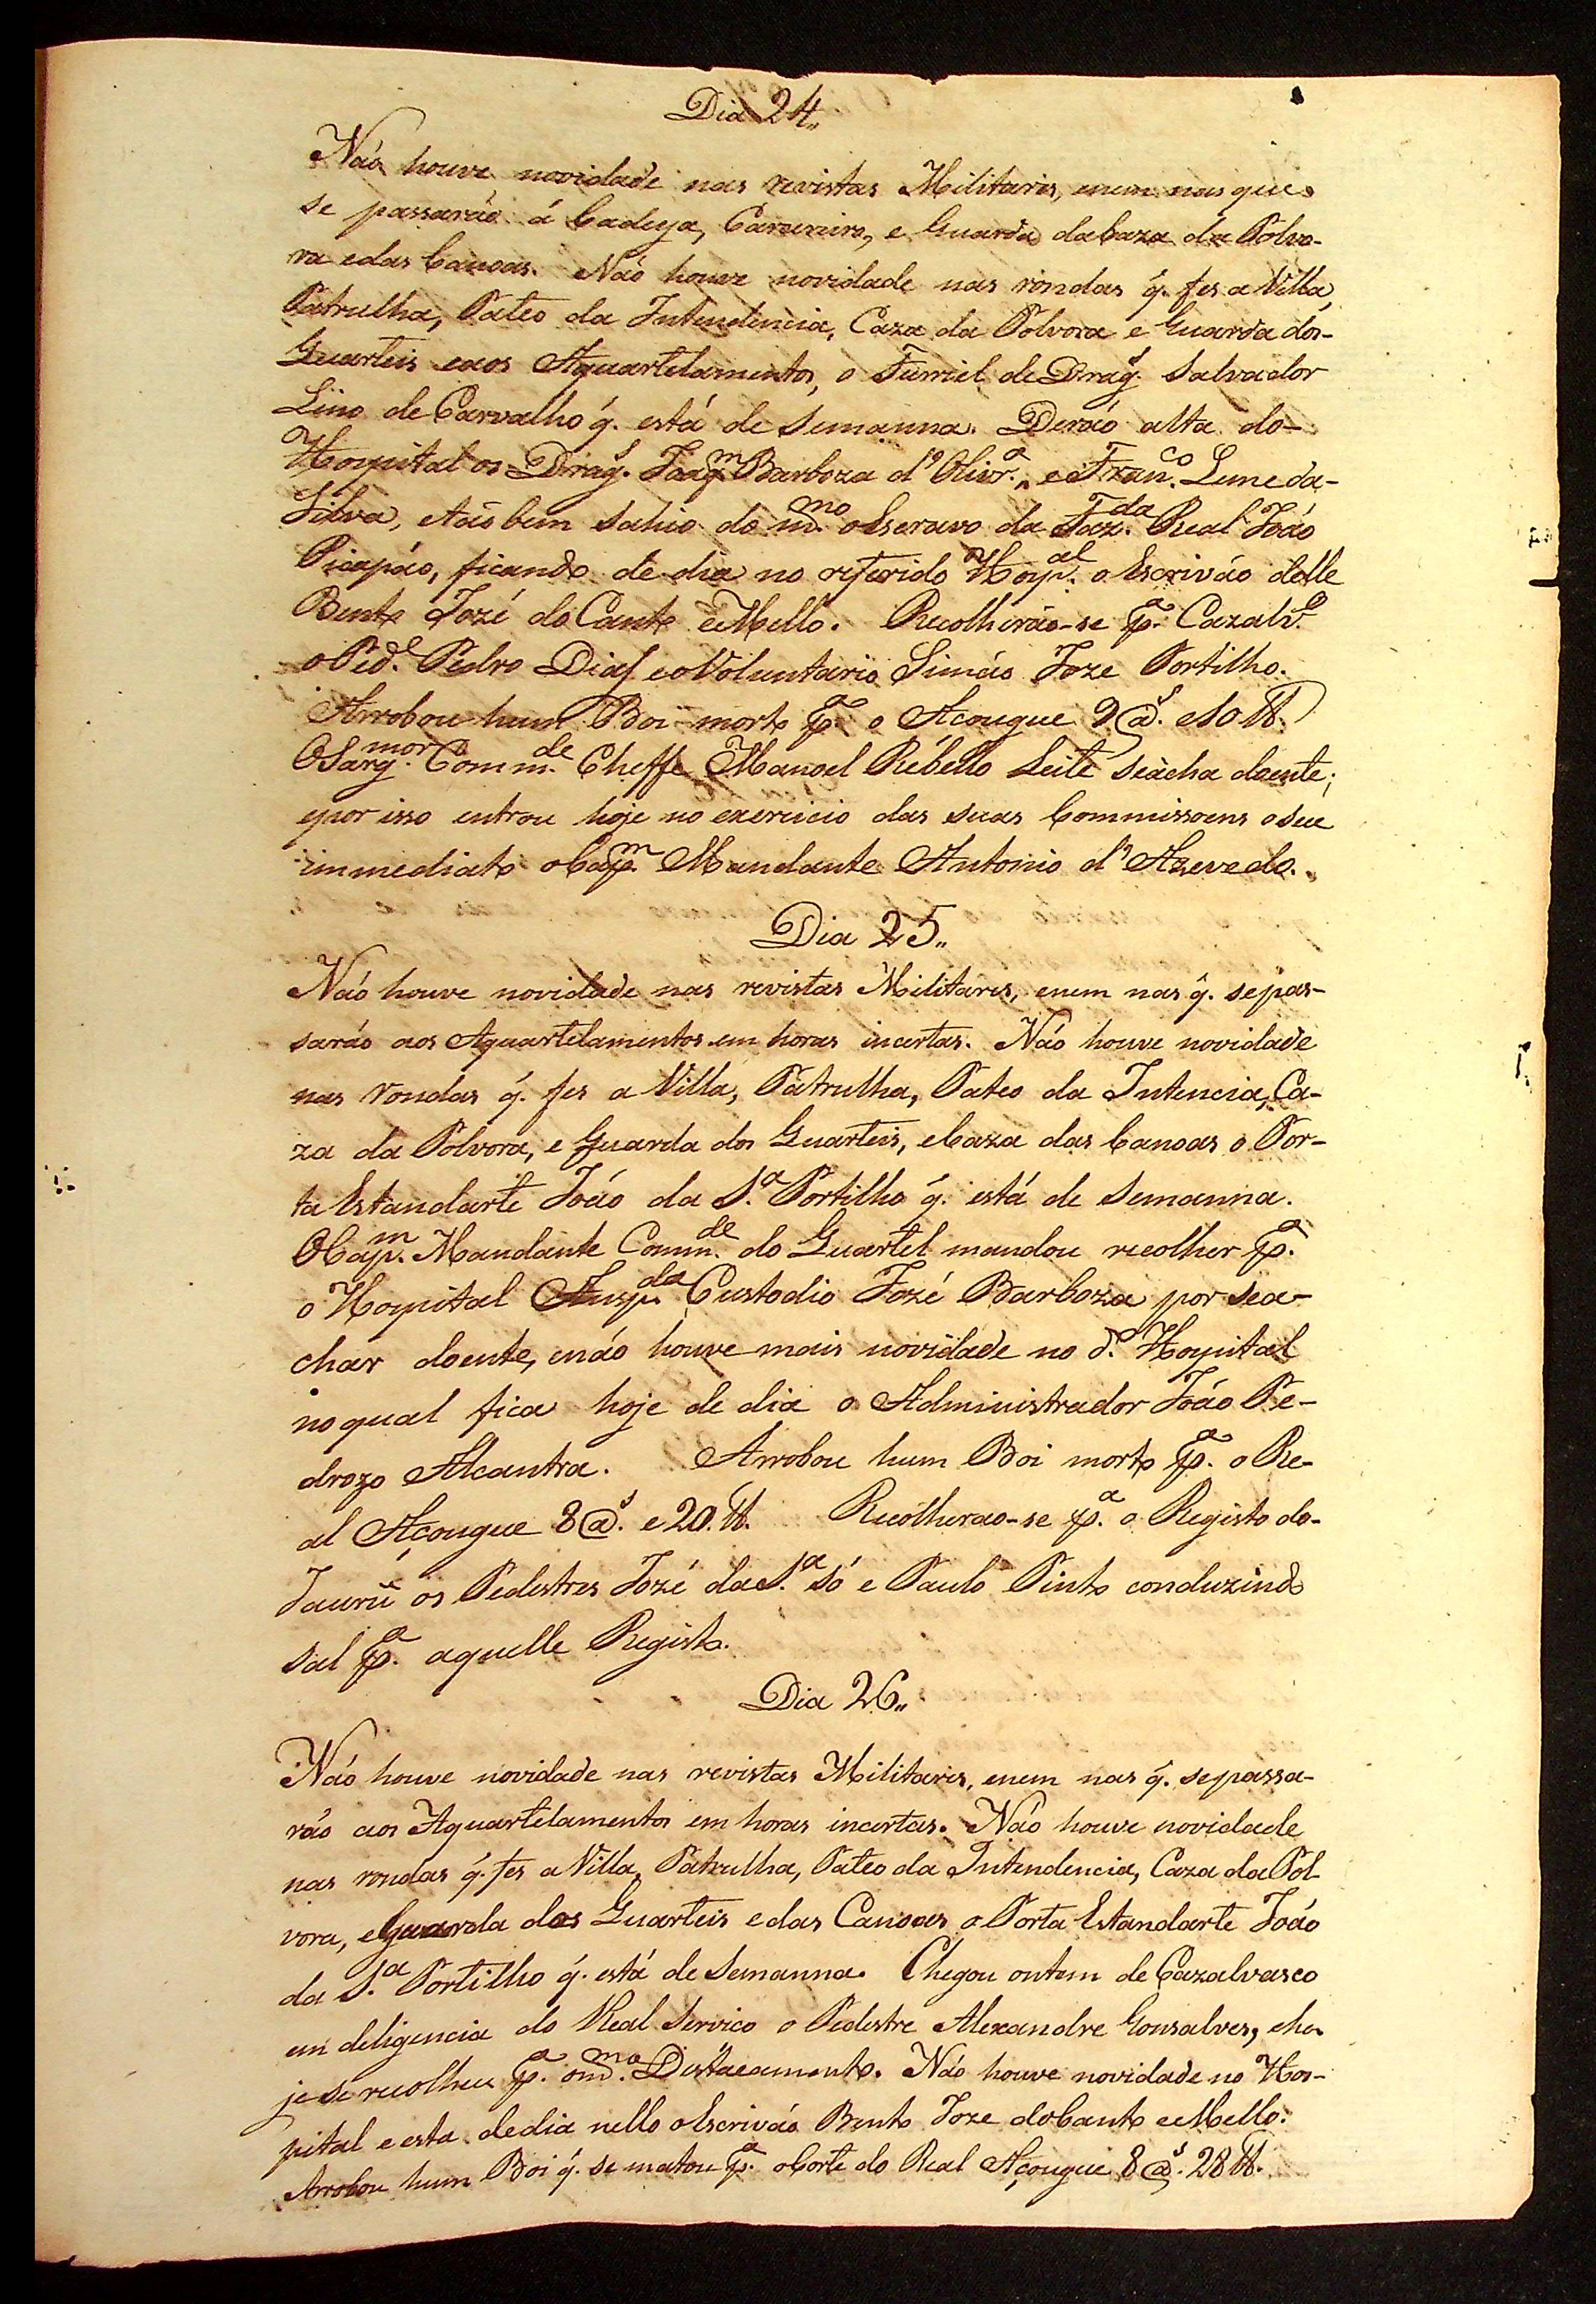 Dia 24,,
Náo houve novidade nas revistas Militares, enem nas que
se passaráo á Cadeya, Caruneiro, e Guarda daCaza da Polvo-
ra edas Canoas. Náo houve novidade nas rondas q̃. fes a Villa,
Patrulha, Pateo da Intendencia, Caza da Polvora e Guarda dos-
Quarteis eaos Aquartelamentos, o Furriel de Drag.s Salvador
Lino de Carvalho q̃. está de Semanna. Deráo alta do-
Hospital os Drag.s Joaq.m Barboza d'Oliv.ra, e Fran.co Leme da-
Silva, etaõbem Sahio do m.mo oEscravo da Faz.da Real Joáo
Picapáo, ficando de dia no referido Hosp.al o Escriváo delle
Bento Jozé do Canto eMello. Recolheráo-se p.a Cazalv.o
oPed.e Pedro Dias eoVoluntario Simáo Joze Portilho.
Arrobou hum Boi morto p.a o Açougue 9@.s e10 ℔.
OSarg.mor Comm.de Cheffe Manoel Rebello Leite seácha doente;
epor isso entrou hoje no exercicio das suas Commissoens oseu
immediato oCap.m Mandante Antonio d'Azevedo.
Dia 25,,
Náo houve novidade nas revistas Militares, enem nas q̃. sepas-
saráo aos Aquartelamentos em horas incertas. Náo houve novidade
nas rondas q̃. fes a Villa, Patrulha, Pateo da Intencia, Ca-
za da Polvora, e Guarda dos Quarteis, eCaza das Canoas o Por-
ta Estandarte Joáo da S.a Portilho q̃. está de Semanna.
OCap.m Mandante Comm.de do Quartel mandou recolher p.a
o Hospital Ansp.da Custodio Jozé Barboza por sea-
char doente, enáo houve mais novidade no d.o Hospital
noqual fica hoje de dia o Administrador Joáo Pe-
drozo Alcantra. Arrobou hum Boi morto p.a o Re-
al Açougue 8@.s e 20.℔. Recolherao-se p.a o Registo do-
Jaurú os Pedestres Jozé daS.a Só e Paulo Pinto conduzindo
sal p.a aquelle Registo.
Dia 26,,
Náo houve novidade nas revistas Militares, enem nas q̃. sepassa-
ráo aos Aquartelamentos em horas incertas. Náo houve novidade
nas rondas q̃. fes a Villa, Patrulha, Pateo da Intendencia, Caza daPol
vora, eGuarda dos Quarteis edas Canoas o Porta Estandarte Joáo
da S.a Portilho q̃. está de Semanna. Chegou ontem de Cazalvasco
em deligencia do Real Servico o Pedestre Alexandre Gonsalves, eho-
je se recolheu p.a om.mo Destacamento. Náo houve novidade no Hos-
pital e esta dedia nello oEscriváo Bento Joze doCanto eMello.
Arrobou hum Boi q̃. se matou p.a oCorte do Real Açougue 8@.s 28℔.